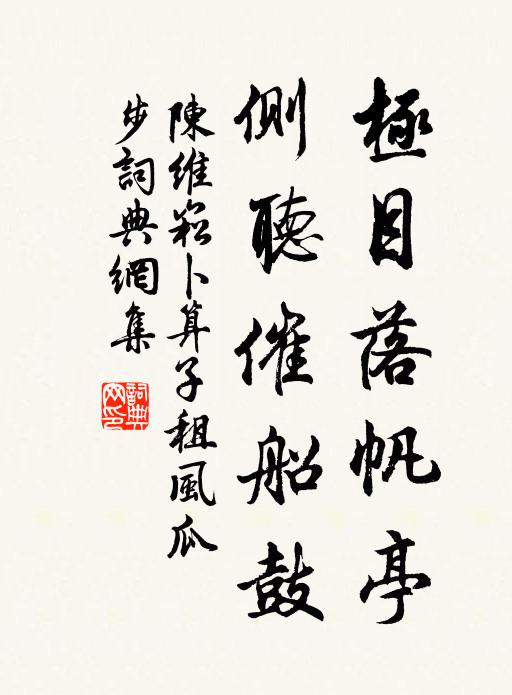 極目落帆亭
側聽催船鼓
陳維崧卜算子租風瓜
步詞典網集
詞典网印